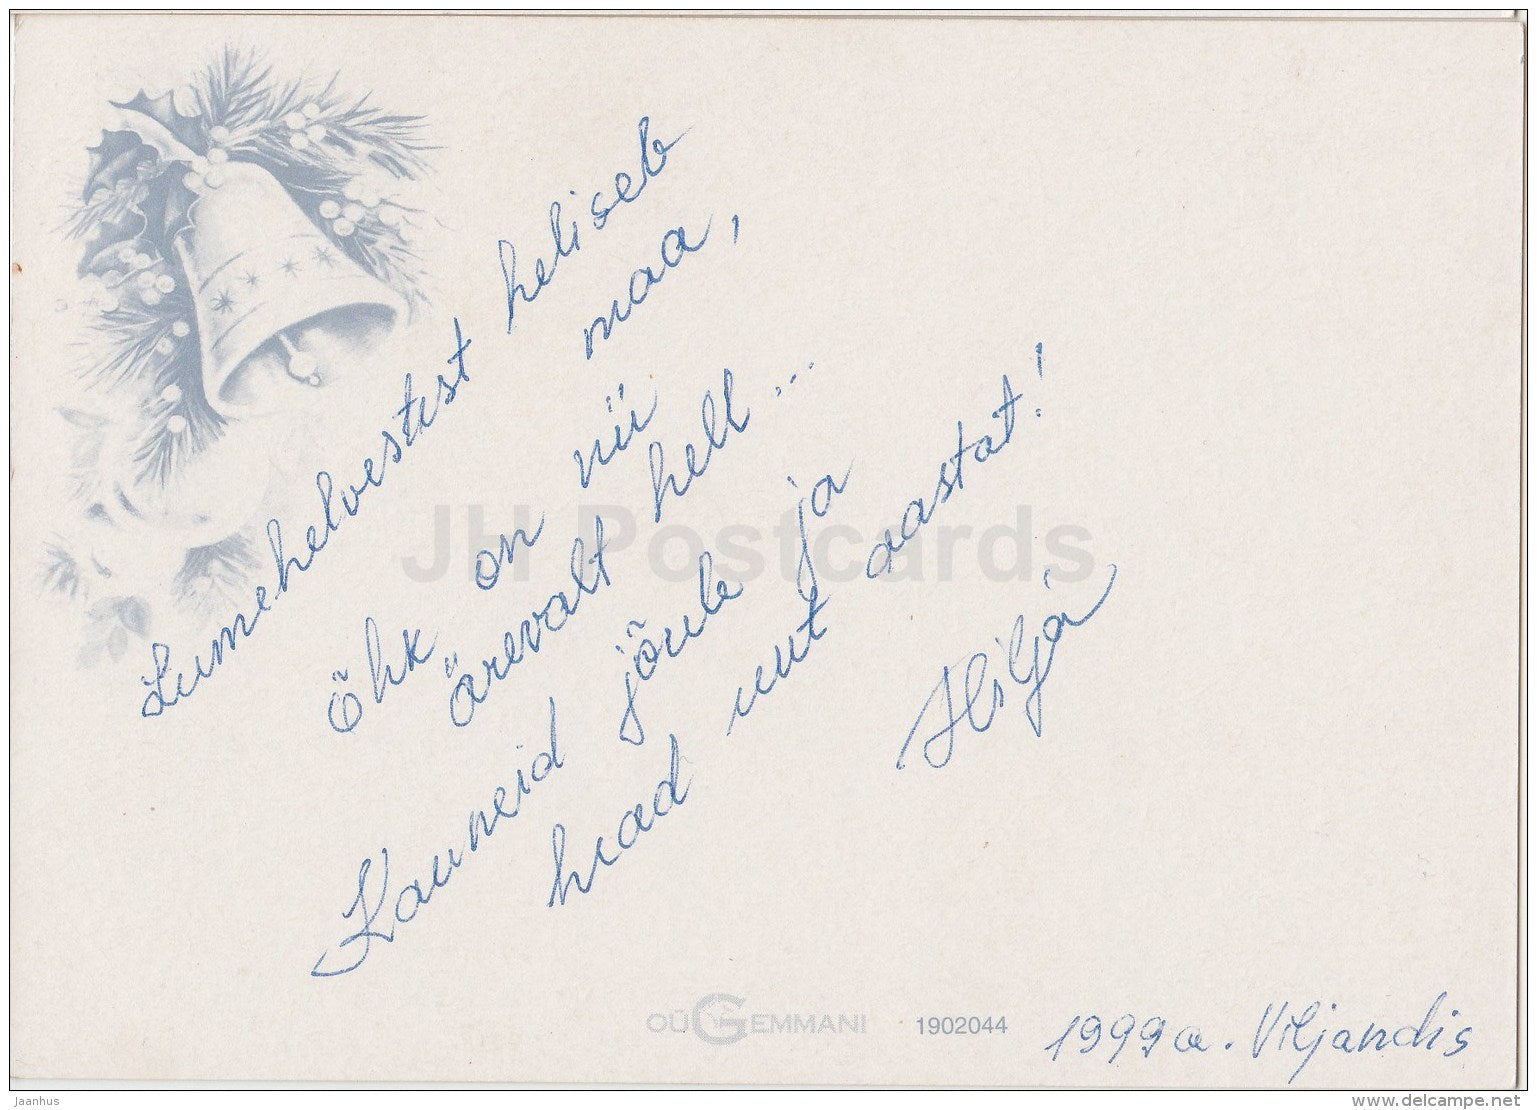 Lumehelvestest heliseb
maa,
õhk on nii
ärevalt hell...
Kauneid jõule ja
head uut aastat!
Hilja
JH Postcards
OÜ GEMMANI 1902044
1999 a. Viljandis
Jaanhus
www.delcampe.net